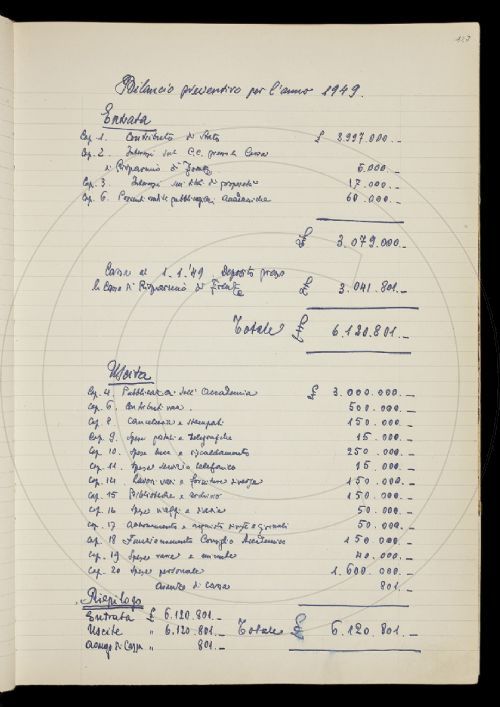 Bilancio preventivo per l'anno 1949.
Entrata
Cap. 1. Contributo di Stato £ 2.997.000.-
Cap. 2. Interessi sul C.C. presso la Cassa
di Risparmio di Firenze 5.000.-
Cap. 3. Interessi sui titoli di proprietà 17.000.-
Cap. 6. pubblicazioni accademiche 60.000.-
3.079.000.-
Cassa al 1.1.'49. Deposito presso
la Cassa di Risparmio di Firenze 3.041.801.-
Totale 6.120.801.-
Uscita
Cap. 4. Pubblicazioni dell'Accademia 3.000.000.-
Cap. 6. Contributi vari. 500.000.-
Cap. 8 Cancelleria e stampati 150.000.-
Cap. 9. Spese postali e telegrafiche 15.000.-
Cap. 10. Spese luce e riscaldamento 250.000.-
Cap. 11. Spese servizio telefonico 15.000.-
Cap. 12. Lavori vari e forniture diverse 150.000.-
Cap. 15 Biblioteche e archivio 150.000.-
Cap. 16 Spese viaggi e diarie 50.000.-
Cap. 17 Abbonamento e acquisto riviste e giornali 50.000.-
Cap. 18 Funzionamento Consiglio Accademico 150.000.-
Cap. 19 Spese varie e minute 40.000.-
Cap. 20 Spese personale 1.600.000.-
Avanzo di cassa 801.-
Riepilogo
Entrata £ 6.120.801.-
Uscite " 6.120.801.- Totale 6.120.801.-
Avanzo di Cassa 801.-